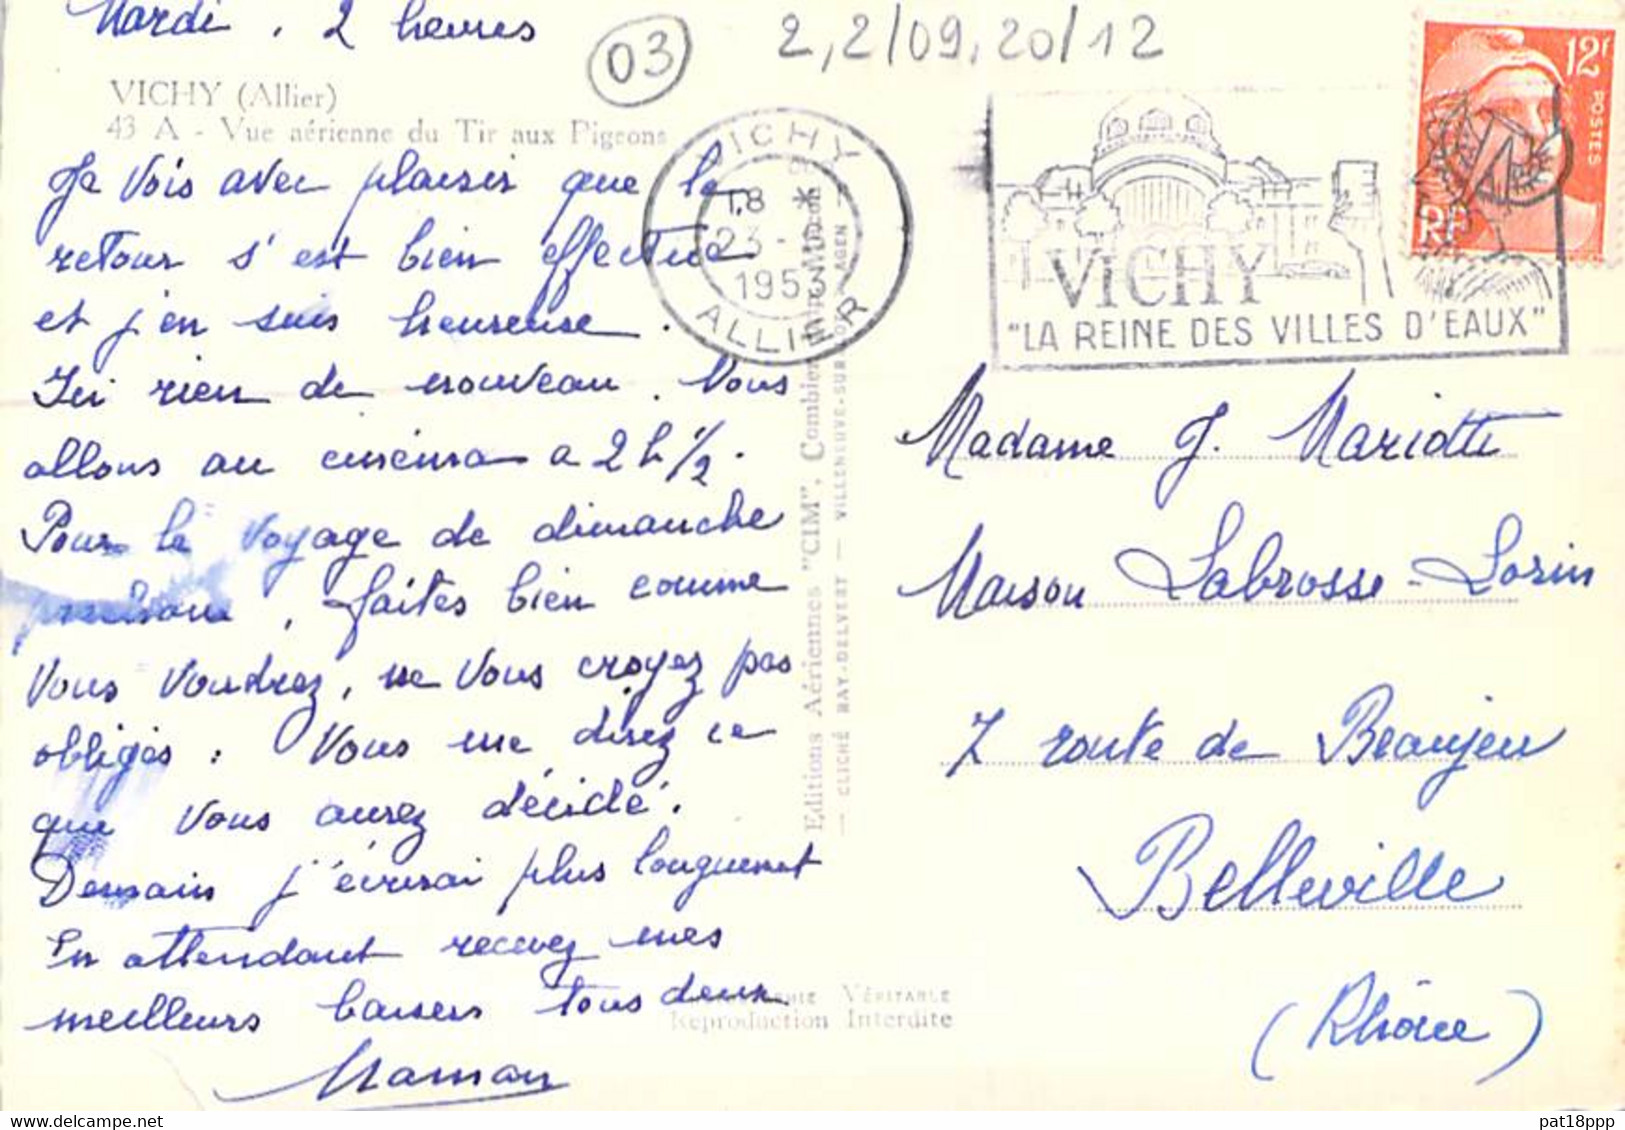 Mardi, 2 heures
03
2,2/09,20/12
VICHY (Allier)
43 A - Vue aérienne du Tir aux Pigeons
Je vois avec plaisir que le
retour s'est bien effectué
et j'en suis heureuse.
Ici rien de nouveau. Nous
allons au cinéma a 2 h 1/2.
Pour le voyage de dimanche
prochain, faites bien comme
vous voudrez, ne vous croyez pas
obligés : vous me direz ce
que vous aurez décidé.
Demain j'écrirai plus longuement
En attendant recevez mes
meilleurs baisers tous deux
Maman
VICHY
18 *
23 -
1953
ALLIER
12F
POSTES
RF
VICHY
"LA REINE DES VILLES D'EAUX"
Editions Aériennes "CIM", Combier
CLICHÉ RAY-DELVERT — VILLENEUVE-SUR-LOT
AGEN
VÉRITABLE
Reproduction Interdite
Madame J. Mariotte
Maison Labrosse-Lorin
7 route de Beaujeu
Belleville
(Rhône)
pat18ppp